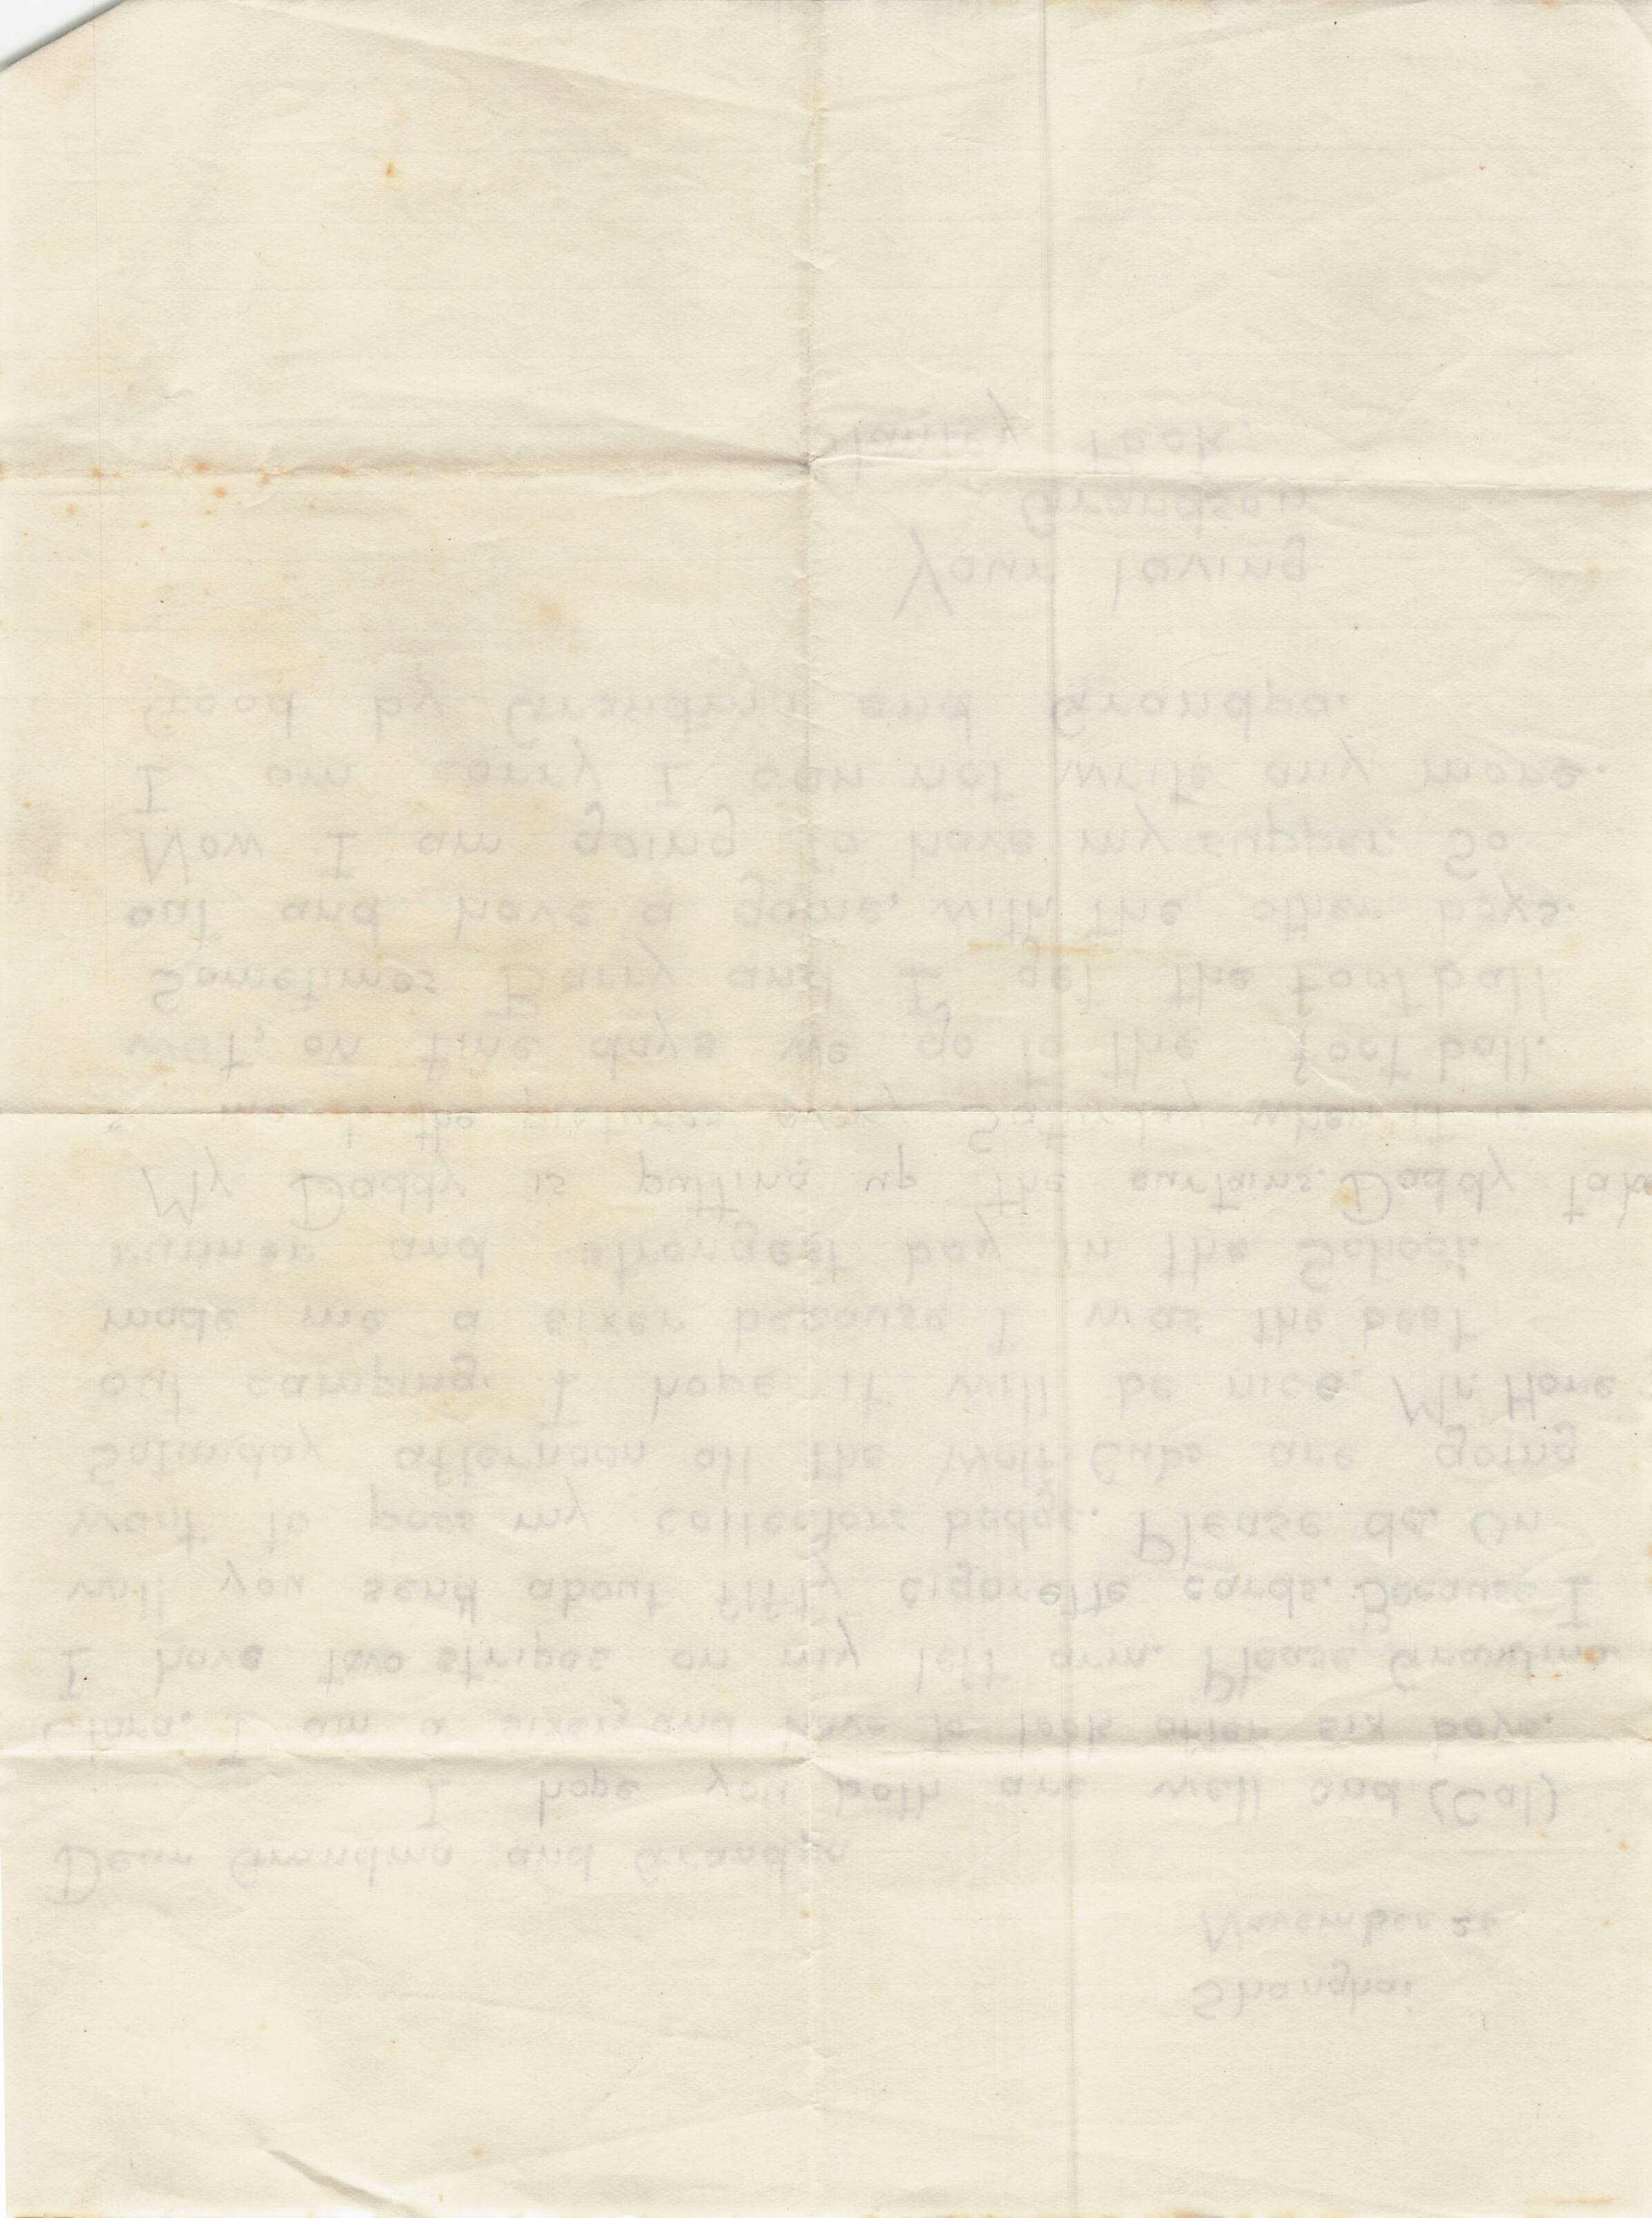 Shanghai
November 22
Dear Grandma and Grandpa
I hope you both are well and (Cal)
Clara. I am a sixer, and have to look after six boys.
I have two stripes on my left arm. Please Grandma
will you send about fifty cigarette cards. Because I
want to pass my collectors badge. Please do. On
Saturday afternoon all the Wolf Cubs are going
out camping. I hope it will be nice. Mr. Hone
made me a sixer because I was the best
runner and strongest boy in the School.
My Daddy is putting up the curtains. Daddy take
to the pictures every Saturday when it is
wet, on fine days we go to the foot ball.
Sometimes Barry and I get the foot ball
out and have a game, with the other boys.
Now I am going to have my supper. So
I am sorry I can not write any more.
Good by Grandma and Grandpa.
Your loving
Grandson
Stanley Peck.